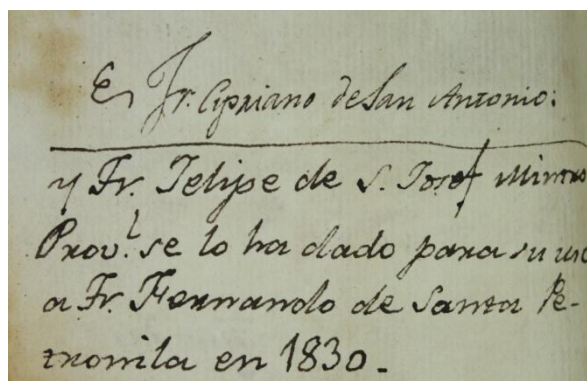 Es Fr. Cypriano de San Antonio:
y Fr. Felipe de S. Josef Mintro
Prov.l se lo ha dado para su uso
a Fr. Fernando de Santa Pe-
tronila en 1830.